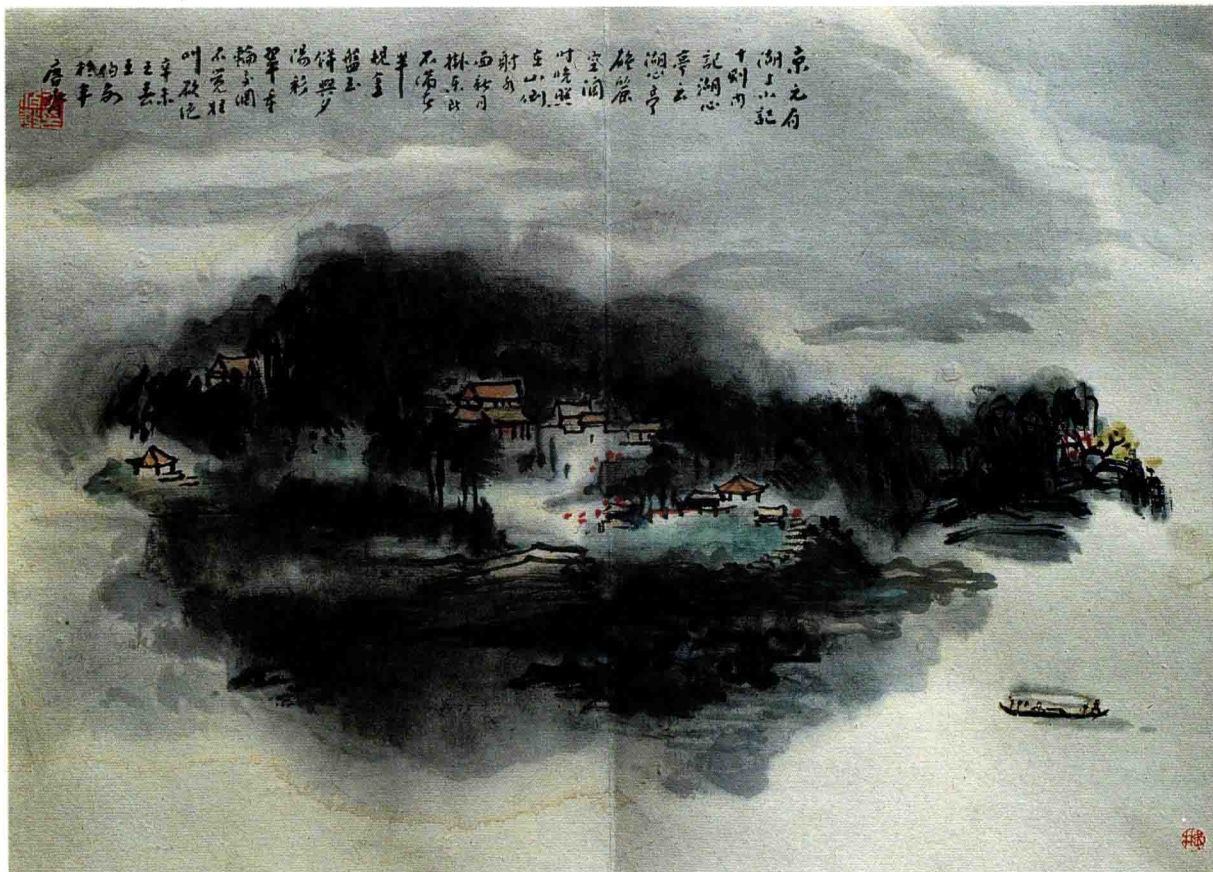 京元有
湖上小記
十則內
記湖心
亭云
湖心亭
雄麗
空闊
时晚照
在山倒
射水
面新月
掛東所
不滿者
半
規金
盤玉
餅與夕
陽彩
翠重
輪交網
不覺狂
叫欲绝
辛未
之春
王
伯敏
於半
唐齋